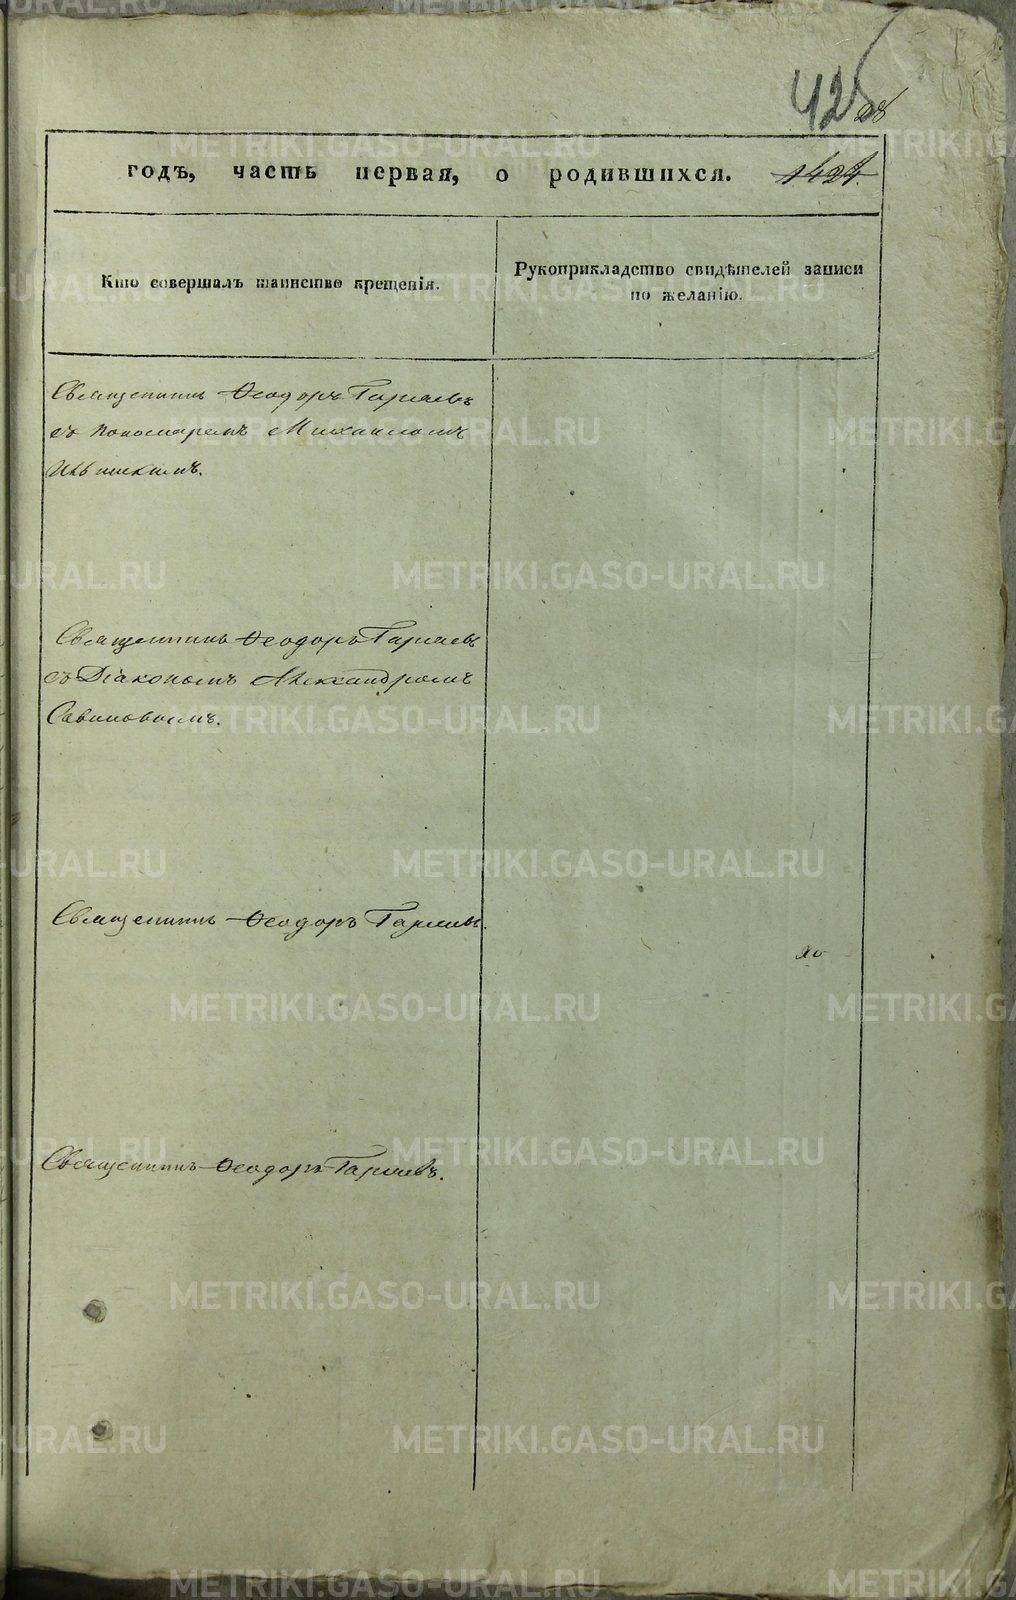 425
28
годъ, часть первая, о родившихся. 1424.
Кто совершалъ таинство крещенія.
Рукоприкладство свидѣтелей записи
по желанію.
Священникъ Ѳеодоръ Гаряевъ
съ пономаремъ Михаиломъ
Священникъ Ѳеодоръ Гаряевъ
съ Діакономъ Александромъ
Савиновымъ.
Священникъ Ѳеодоръ Гаряевъ.
Священникъ Ѳеодоръ Гаряевъ.
METRIKI.GASO-URAL.RU